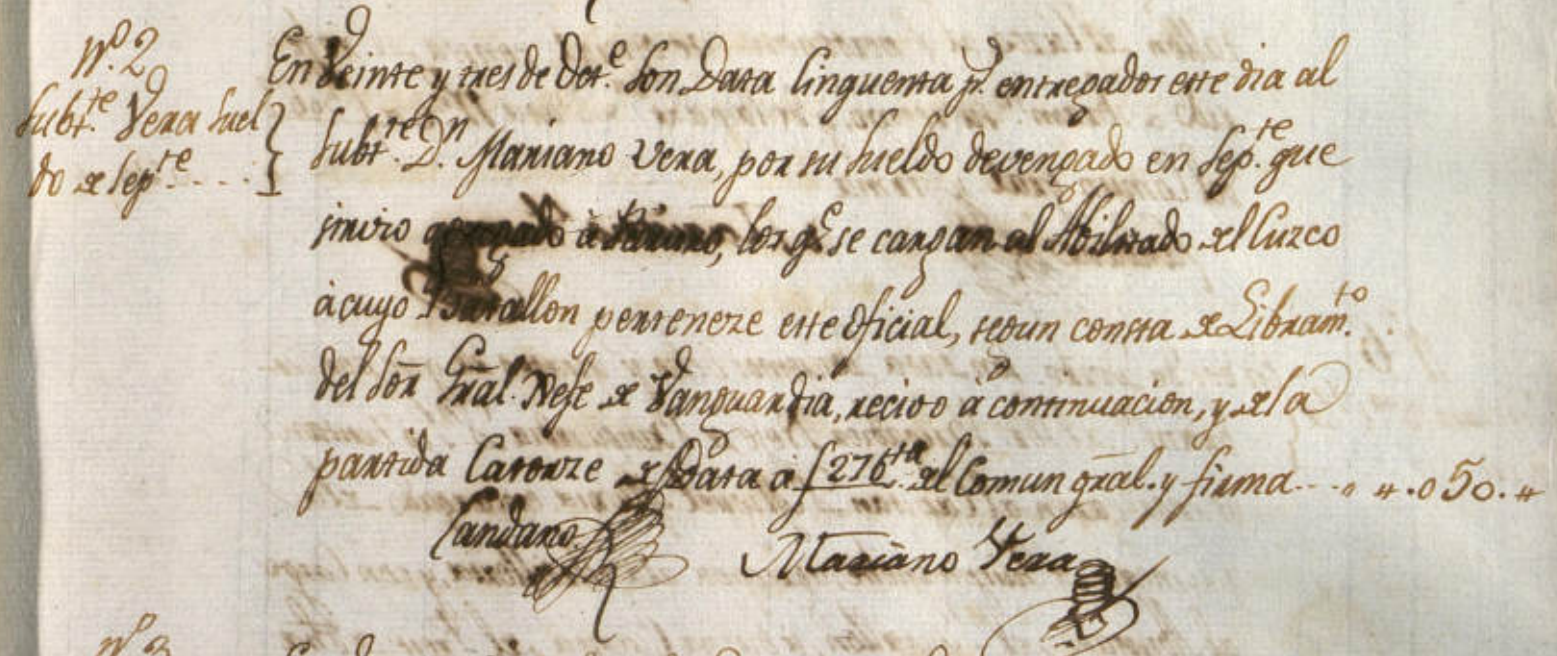 Nº. 2
Subt.te Vera suel
do de Sept.te
En Veinte y tres de Oct.e son Data Cinquenta p.s entregados este dia al
Subt.te D.n Mariano Vera, por su sueldo devengado en Sep.te que
sirvio agregado à, los q.e se cargan al Abilitado del Cuzco
à cuyo Batallon perteneze este Oficial, segun consta de Libram.to
del Sõr Grãl. Xefe de Vanguardia, recivo à continuacion, y de la
partida Catorze de Data à f 276 ta. del Comun grãl. y firma .... 050.
Candano
Mariano Vera
Nº. 3